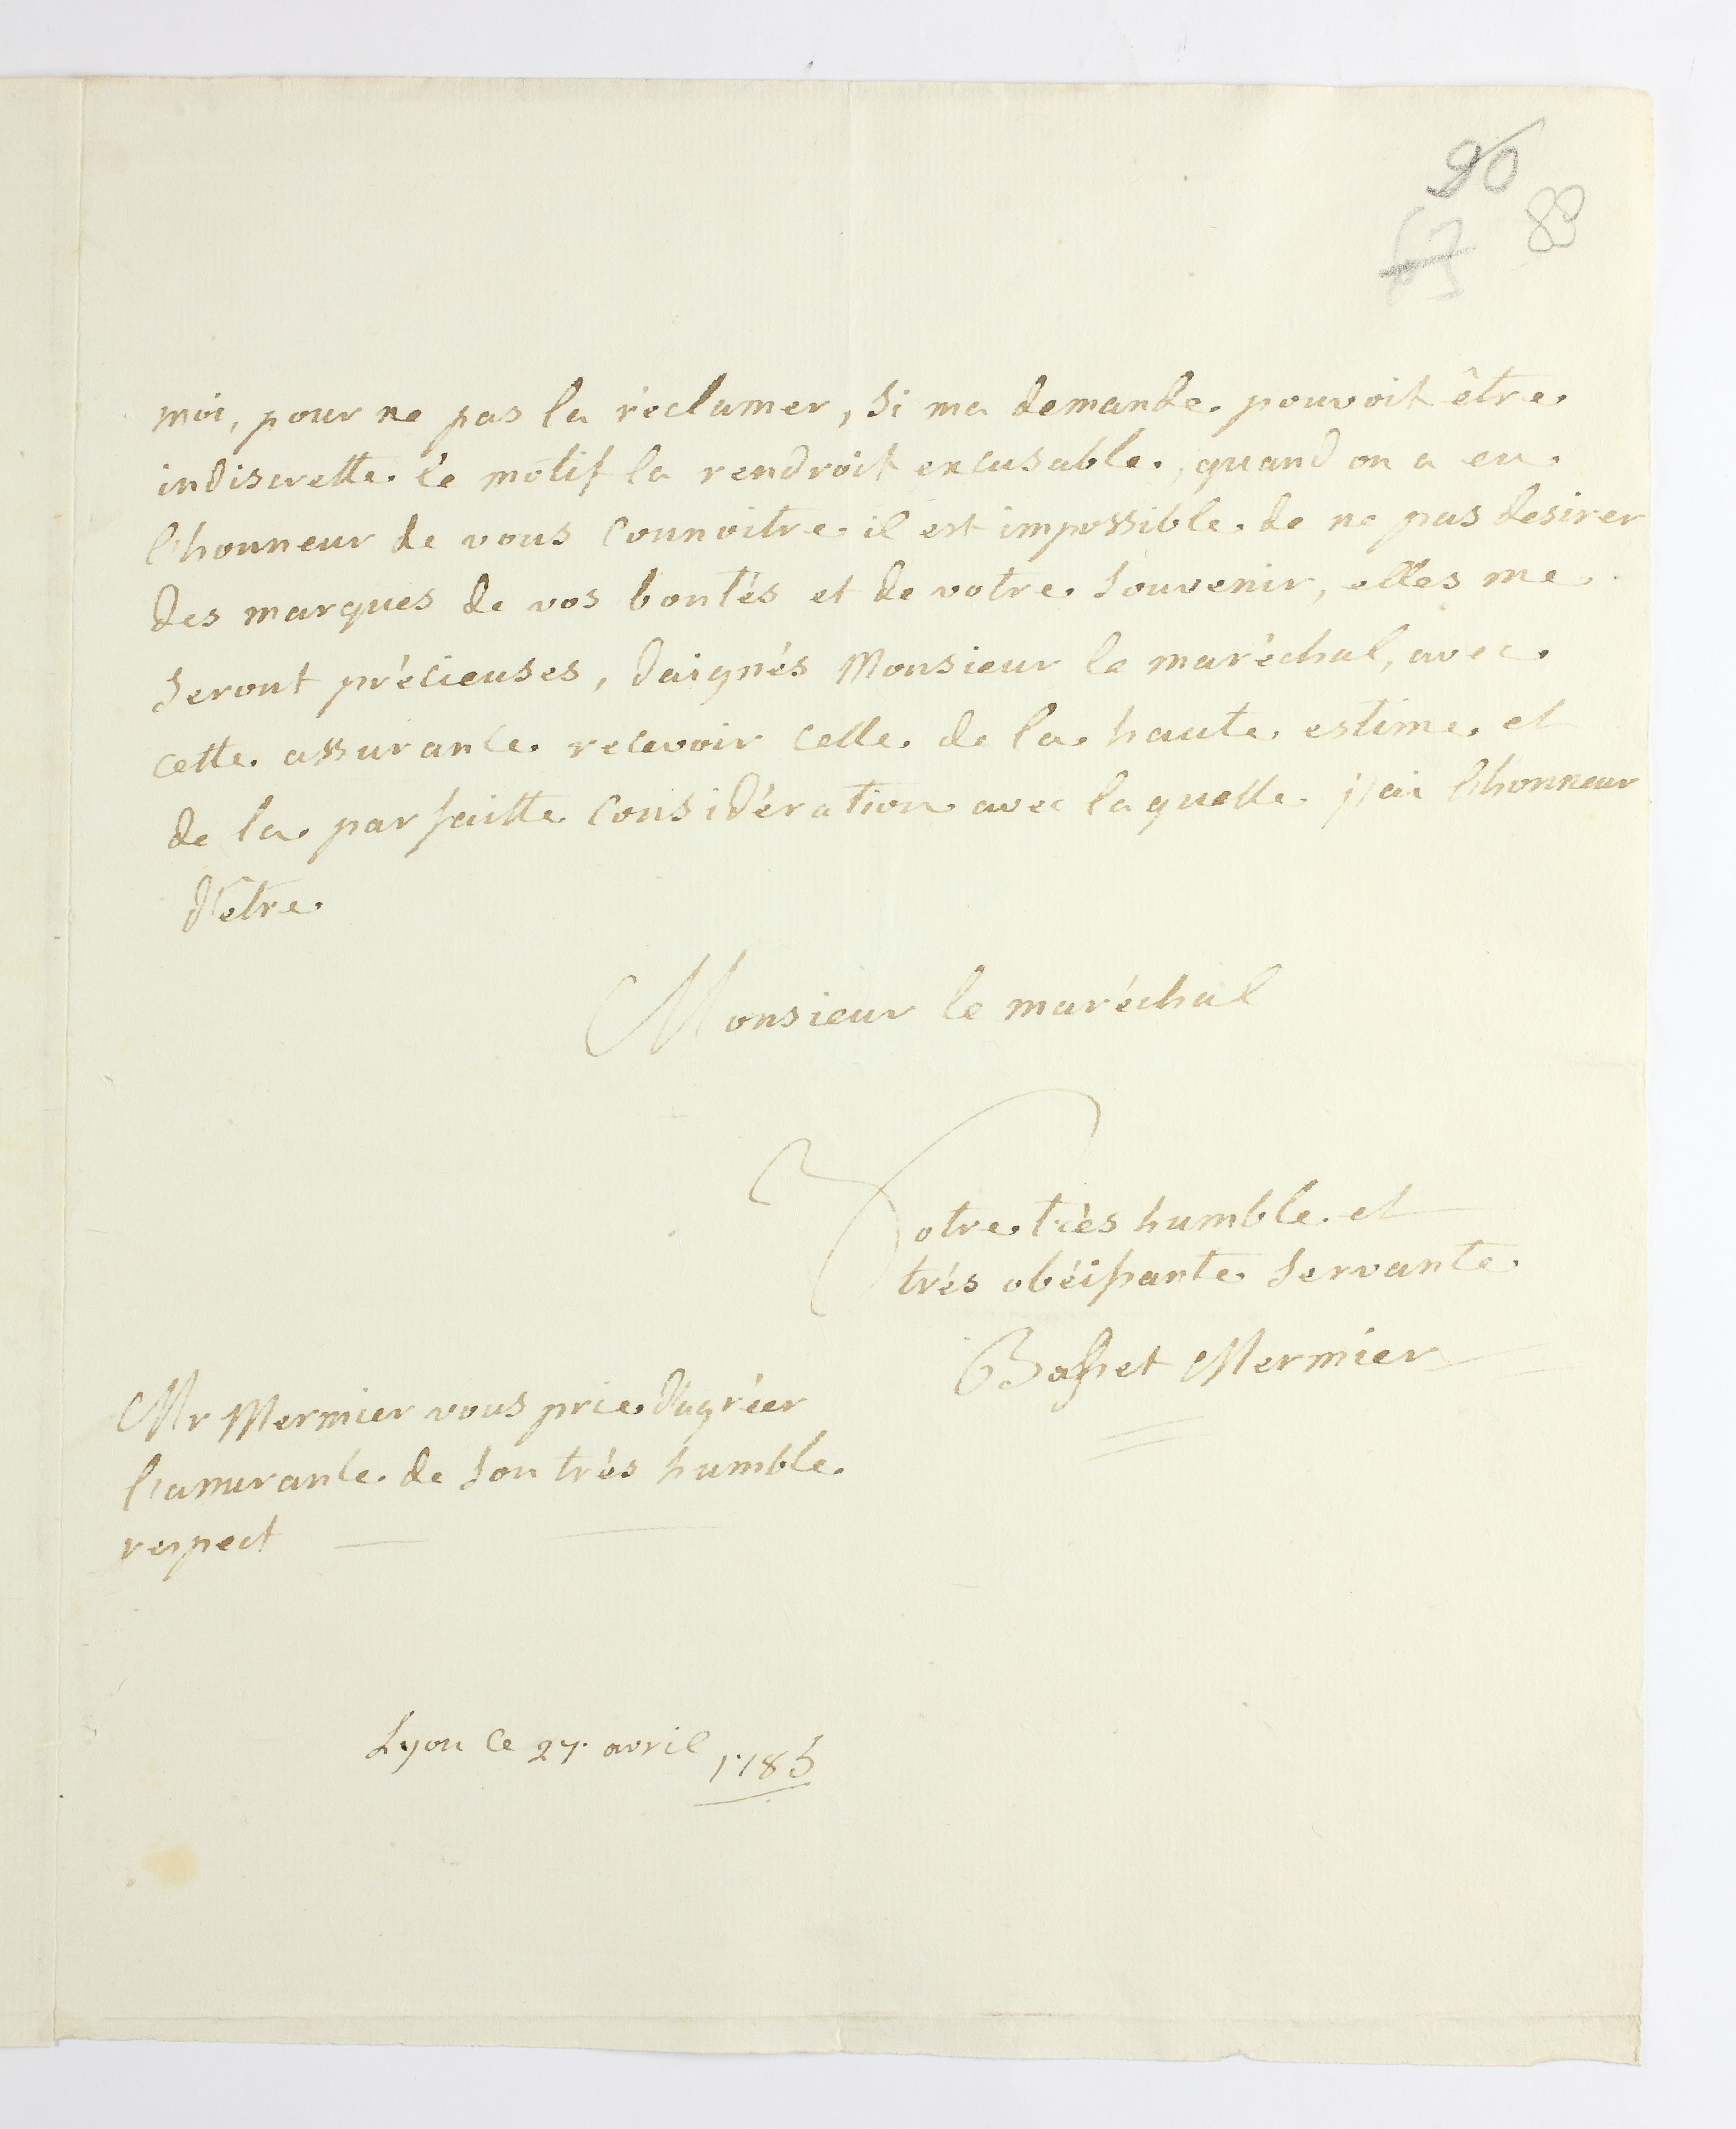 90
83
67
moi, pour ne pas la réclamer, si ma demande pouvoit être
indiscrette le motif la rendroit excusable, quand on a eu
l'honneur de vous connoitre il est impossible de ne pas desirer
des marques de vos bontés et de votre souvenir, elles me
seront précieuses, daignés Monsieur le maréchal, avec
cette assurance recevoir celle de la haute estime et
de la parfaitte considération avec laquelle j'ai l'honneur
d'être
Monsieur le maréchal
Votre très humble et
très obéissante servante
Basset Mermier
Mr Mermier vous prie d'agréer
l'assurance de son très humble
respect
Lyon ce 27 avril 1785